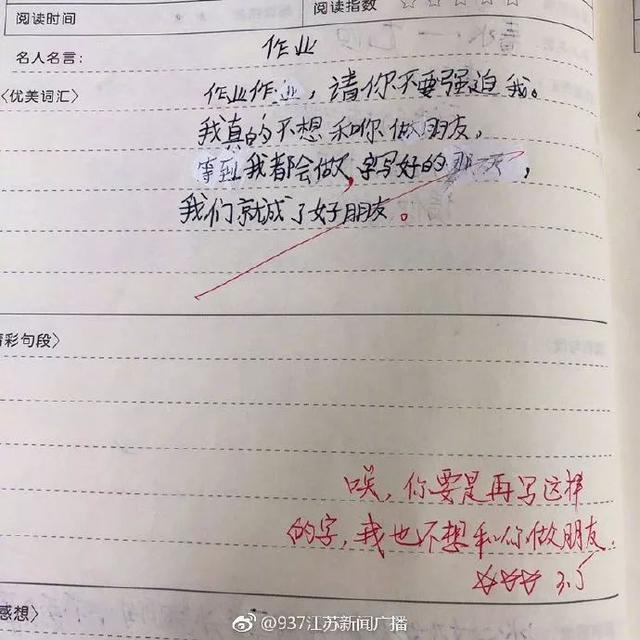 阅读时间
阅读指数 ☆☆☆☆☆
名人名言：
作业
〈优美词汇〉
作业作业，请你不要强迫我。
我真的不想和你做朋友，
等到我都会做，字写好的那天，
我们就成了好朋友。
精彩句段〉
唉，你要是再写这样
的字，我也不想和你做朋友.
☆☆☆ 3.5
感想〉
@937江苏新闻广播